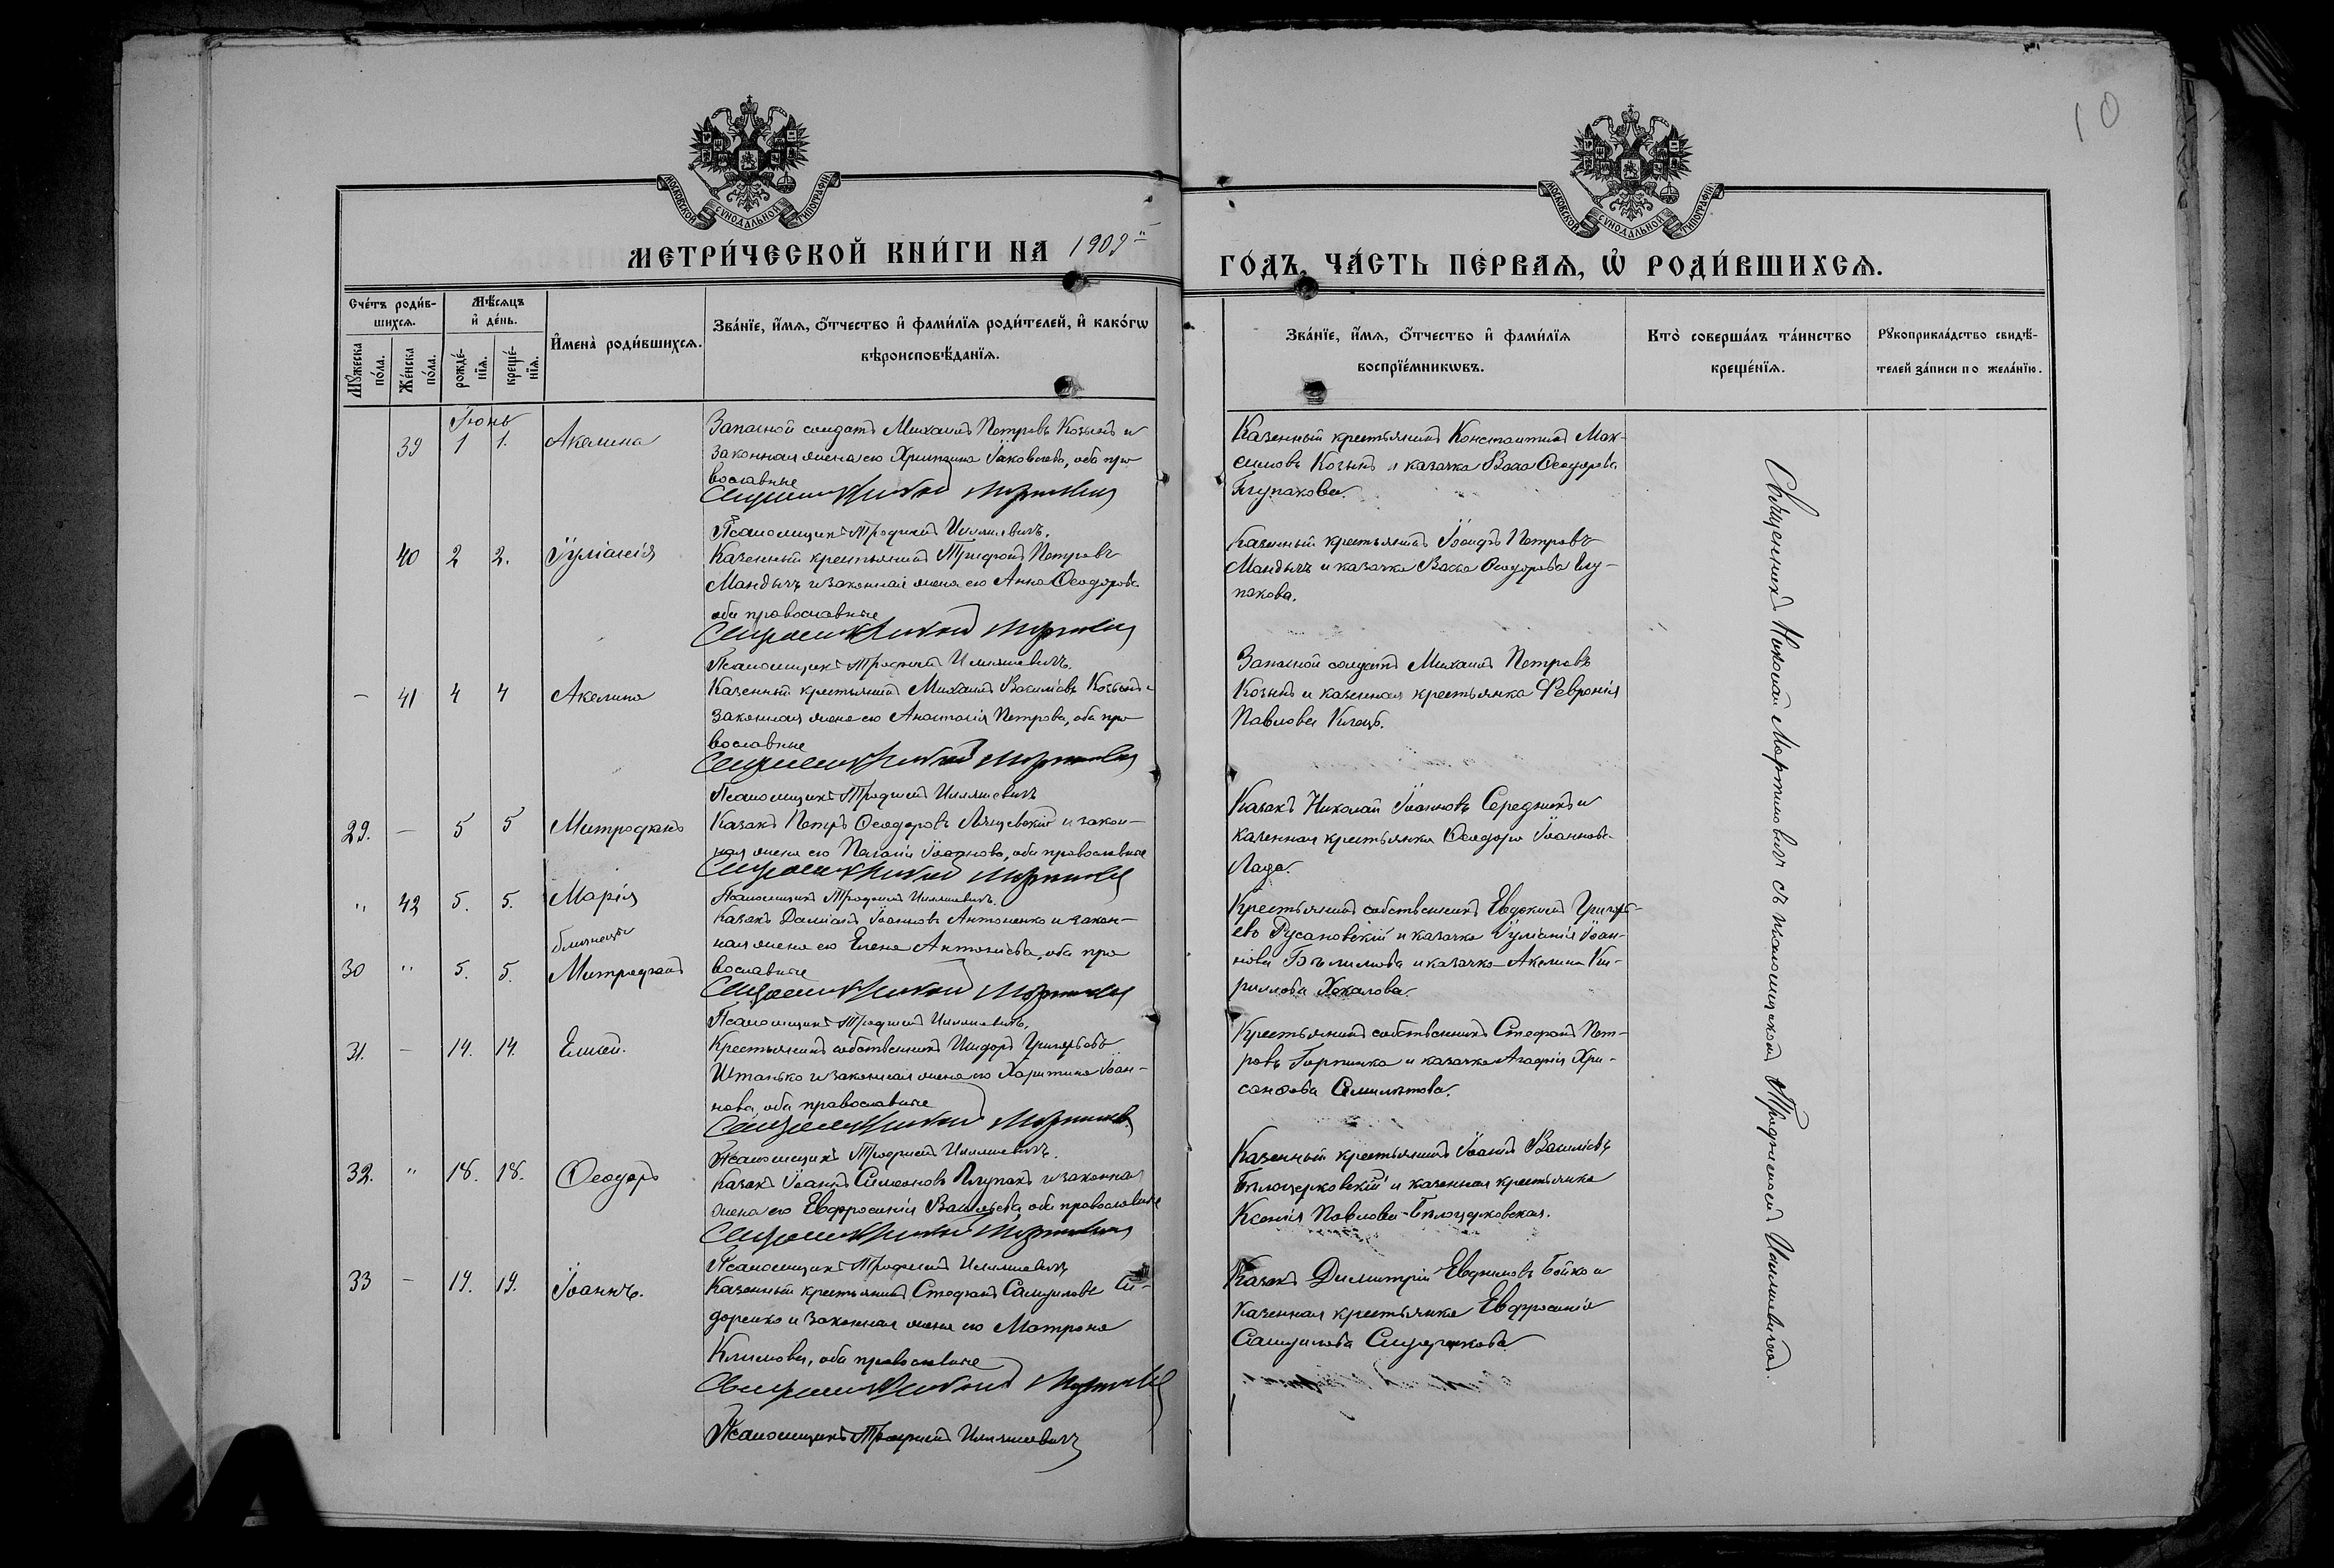 10
МОСКОВСКОЙ СѴНОДАЛЬНОЙ ТИПОГРАФІИ
МОСКОВСКОЙ СѴНОДАЛЬНОЙ ТИПОГРАФІИ
МЕТРИ́ЧЕСКОЙ КНИ́ГИ НА 1909
ГО́ДЪ, ЧА́СТЬ ПЕ́РВАѦ, Ѡ҆ РОДИ́ВШИХСѦ.
Сче́тъ роди́в-
шихсѧ.
Мѣ́сѧцъ
и҆ де́нь.
И҆мена̀ роди́вшихсѧ.
Зва́нїе, и҆́мѧ, ѻ҆́тчество и҆ фами́лїѧ роди́телей, и҆ како́гѡ
вѣроисповѣ́данїѧ.
Мꙋ́жеска
по́ла.
Же́нска
по́ла.
рожде́-
нїѧ.
креще́-
нїѧ.
Зва́нїе, и҆́мѧ, ѻ҆́тчество и҆ фами́лїѧ
воспрїе́мникѡвъ.
Кто̀ соверша́лъ та́инство
креще́нїѧ.
Рꙋкоприкла́дство свидѣ́-
телей за́писи по жела́нїю.
Іюнь
39 1 1. Акилина
Запасной солдатъ Михаилъ Петровъ Козынъ и
законная жена его Христина Іаковлева, оба пра
вославные
Священникъ Николай Мартинович
Псаломщикъ Трофимъ Илляшевичъ.
Казенный крестьянинъ Константинъ Мак-
симовъ Козынъ и казачка Васса Ѳеодорова
Глупакова.
40 2 2. Іуліанія
Казенный крестьянинъ Трифонъ Петровъ
Мандычъ и законная жена его Анна Ѳеодорова
оба православные
Священникъ Николай Мартинович
Псаломщикъ Трофимъ Илляшевичъ.
Казенный крестьянинъ Іосифъ Петровъ
Мандычъ и казачка Васса Ѳеодорова Глу-
пакова.
— 41 4 4 Акилина
Казенный крестьянинъ Михаилъ Васильевъ Козынъ и
законная жена его Анастасія Петрова, оба пра
вославные
Священникъ Николай Мартинович
Псаломщикъ Трофимъ Илляшевичъ
Запасной солдатъ Михаилъ Петровъ
Козынъ и казенная крестьянка Февронія
Павлова
29. — 5 5 Митрофанъ
Казакъ Петръ Ѳеодоровъ и закон-
ная жена его Пелагія Іоаннова, оба православные
Священникъ Николай Мартинович
Псаломщикъ Трофимъ Илляшевичъ.
Казакъ Николай Іоанновъ Середникъ и
казенная крестьянка Ѳеодора Іоаннова
Лада.
" 42 5. 5. Марія
близнецы
30 " 5. 5. Митрофанъ
Казакъ Даміанъ Іоанновъ Антоненко и закон-
ная жена его Елена Антоніева, оба пра
вославные
Священникъ Николай Мартинович
Псаломщикъ Трофимъ Илляшевичъ.
Крестьянинъ собственникъ Евдокимъ Григорь-
евъ Русановскій и казачка Іуліанія Іоан-
нова и казачка Акилина Ки-
риллова Хохалова.
31. — 14. 14. Елисей.
Крестьянинъ собственникъ Исидоръ Григорьевъ
Штанько и законная жена его Харитина Іоан-
нова, оба православные
Священникъ Николай Мартинович
Псаломщикъ Трофимъ Илляшевичъ.
Крестьянинъ собственникъ Стефанъ Пет-
ровъ и казачка Агафія Хри-
санфова
32. " 18. 18. Ѳеодоръ
Казакъ Іоаннъ Симеоновъ Глупакъ и законная
жена его Евфросинія Васильева, оба православные
Священникъ Николай Мартинович
Псаломщикъ Трофимъ Илляшевичъ
Казенный крестьянинъ Іоаннъ Васильевъ
Бѣлоцерковскій и казенная крестьянка
Ксенія Павлова Бѣлоцерковская.
33 — 19. 19. Іоаннъ.
Казенный крестьянинъ Стефанъ Самуиловъ Си-
доренко и законная жена его Матрона
Климова, оба православные
Священникъ Николай Мартинович
Псаломщикъ Трофимъ Илляшевичъ
Казакъ Димитрій Евфимовъ Бойко и
казенная крестьянка Евфросинія
Самуилова
Священникъ Николай Мартиновичъ съ псаломщикомъ Трофимомъ Илляшевичемъ.